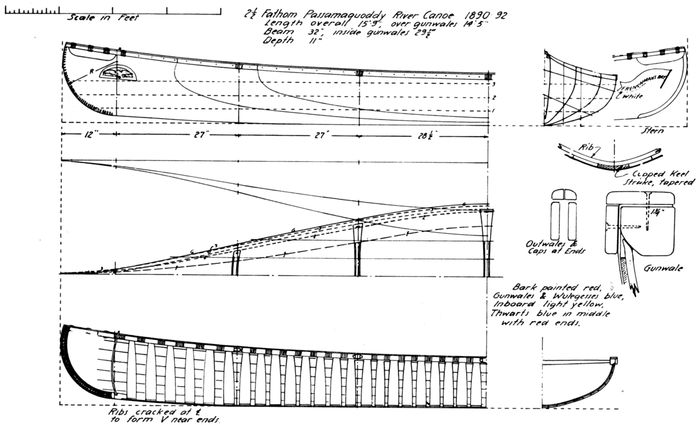 Scale in Feet
2½ Fathom Passamaquoddy River Canoe 1890-92
Length overall 15'9", over gunwales 14'5"
Beam 32", inside gunwales 29½"
Depth 11"
R
3
2
1
FRENCHMANS BAY
White
Stern
12"
27"
27"
28½"
Rib
Cloped Keel
Strake, tapered
1¾"
Outwales &
Caps at Ends
Gunwale
Bark painted red,
Gunwales & Wulegesses blue,
Inboard light yellow,
Thwarts blue in middle
with red ends.
Ribs cracked at ℄
to form V near ends.